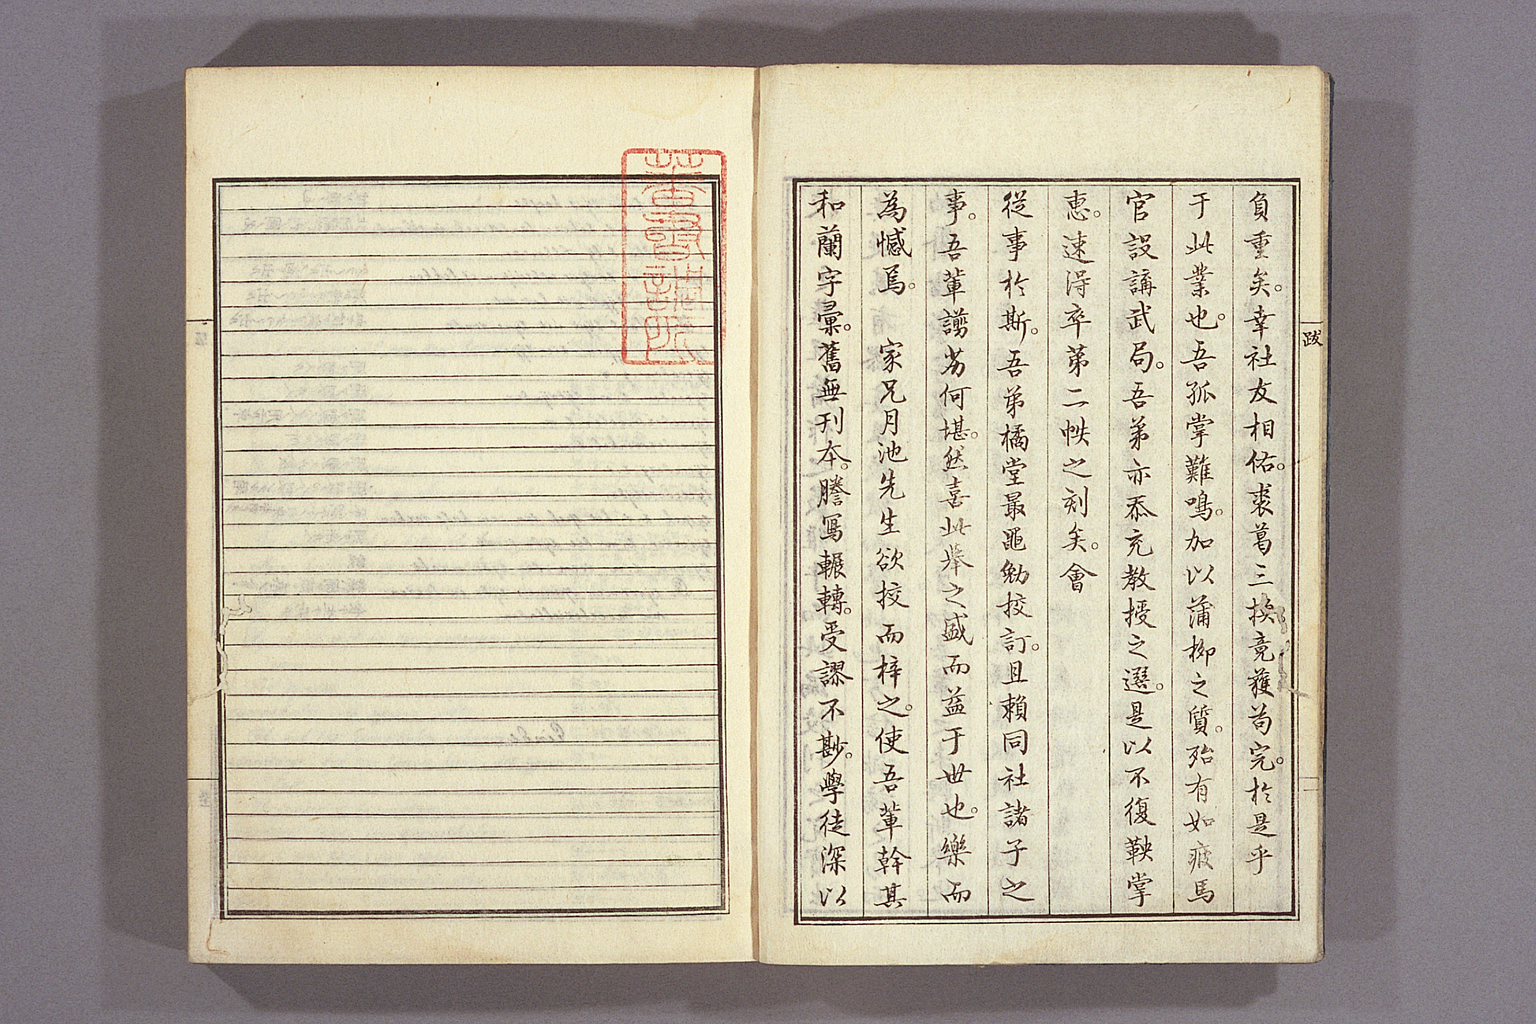 和蘭字彙。舊無刊本。謄寫輾轉。受謬不尠。學徒深以
為憾焉。家兄月池先生欲挍而梓之。使吾輩幹其
事。吾輩謭劣何堪。然喜此舉之盛而益于世也。樂而
從事於斯。吾弟橘堂最黽勉挍訂。且賴同社諸子之
惠。速得卒第二帙之刻矣。會
官設講武局。吾弟亦忝充教授之選。是以不復鞅掌
于此業也。吾孤掌難鳴。加以蒲柳之質。殆有如疲馬
負重矣。幸社友相佑。裘葛三換竟獲苟完。於是乎
跋
蕃書調所